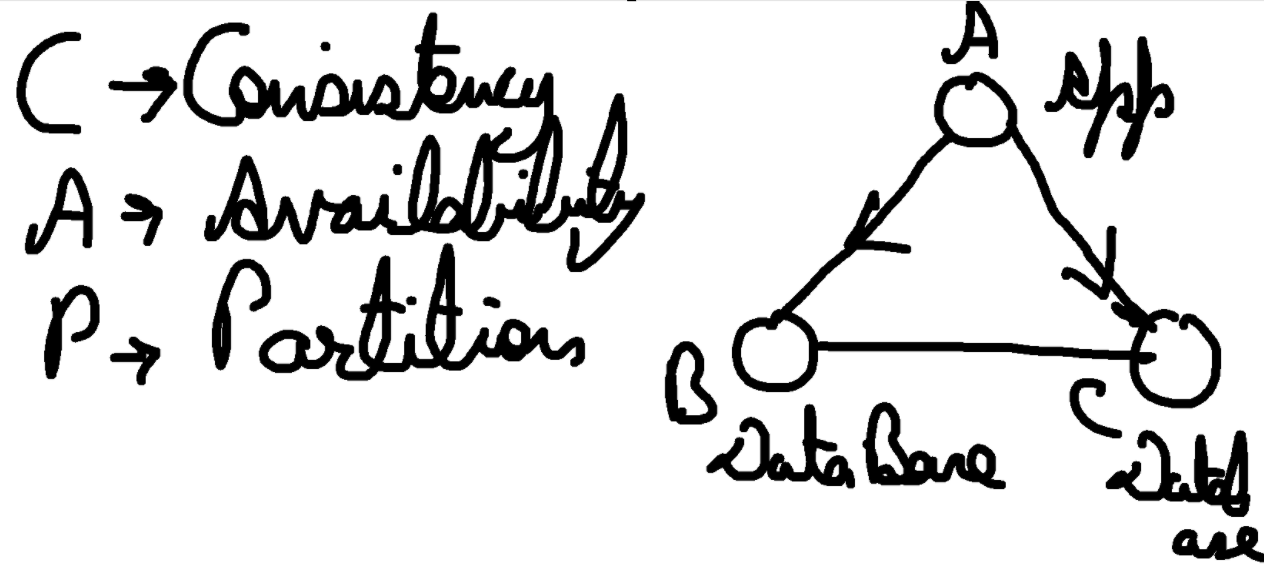 C → Consistency
A → Availability
P → Partitions
A
App
B
DataBase
C
Datab
ase